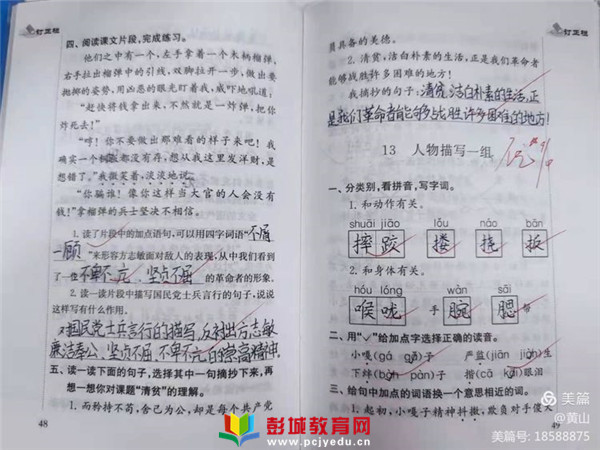 订正栏
四、阅读课文片段,完成练习。
他们之中有一个,左手拿着一个木柄榴弹,
右手拉出榴弹中的引线,双脚拉开一步,做出要
抛掷的姿势,用凶恶的眼光盯着我,威吓地吼道:
“赶快将钱拿出来,不然就是一炸弹,把你
炸死去!”
“哼!你不要做出那难看的样子来吧!我
确实一个铜板都没有存,想从我这里发洋财,是
想错了。”我微笑着,淡淡地说。
“你骗谁!像你这样当大官的人会没有
钱!”拿榴弹的兵士坚决不相信。
1.读了片段中的加点语句,可以用四字词语“不屑
一顾”来形容方志敏面对敌人的表现,从中我们看到
了一位不卑不亢、坚贞不屈的革命者的形象。
2.读一读片段中描写国民党士兵言行的句子,说说
这样写有什么作用。
对国民党士兵言行的描写,反衬出方志敏
廉洁奉公、坚贞不屈、不卑不亢的崇高精神。
五、读一读下面的句子,选择其中一句摘抄下来,再
想一想你对课题“清贫”的理解。
1.而矜持不苟,舍己为公,却是每个共产党
48
订正栏
员具备的美德。
2.清贫,洁白朴素的生活,正是我们革命者
能够战胜许多困难的地方!
我摘抄的句子:清贫,洁白朴素的生活,正
是我们革命者能够战胜许多困难的地方!
13 人物描写一组
一、分类别,看拼音,写字词。
1.和动作有关。
shuāi jiāo lǒu náo bān
摔跤 搂 挠 扳
2.和身体有关。
hóu lóng wàn sāi
喉咙 手腕 腮帮
二、用“✓”给加点字选择正确的读音。
小嘎(gá gǎ)子 严监(jiān jiàn)生
下绊(bàn pàn)子 揩(kāi kā)眼泪
三、给句中加点的词语换一个意思相近的词。
1.起初,小嘎子精神抖擞,欺负对手傻大
49
彭城教育网
www.pcjyedu.cn
美篇
@黄山
美篇号: 18588875